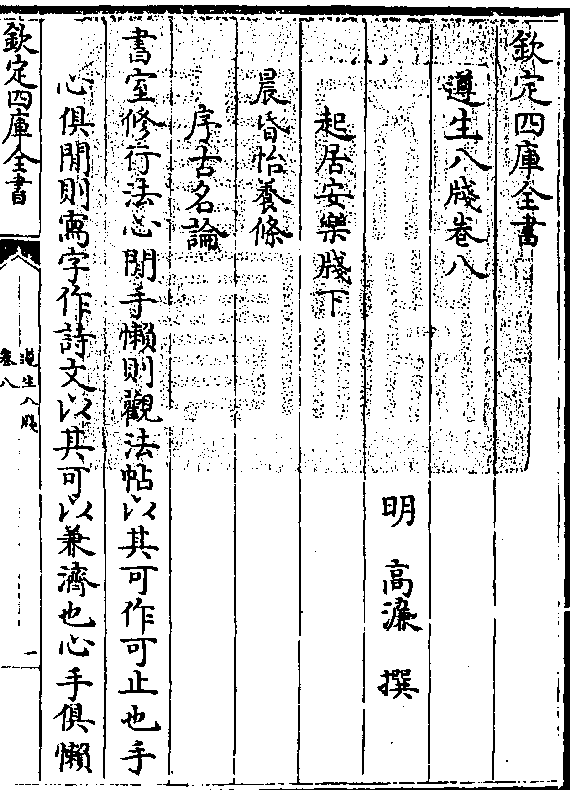 欽定四庫全書
遵生八牋卷八
明 高濂 撰
起居安樂牋下
晨昏怡養條
序古名論
書室修行法心閒手懶則觀法帖以其可作可止也手
心俱閒則寫字作詩文以其可以兼濟也心手俱懶
欽定四庫全書
遵生八牋
卷八
一